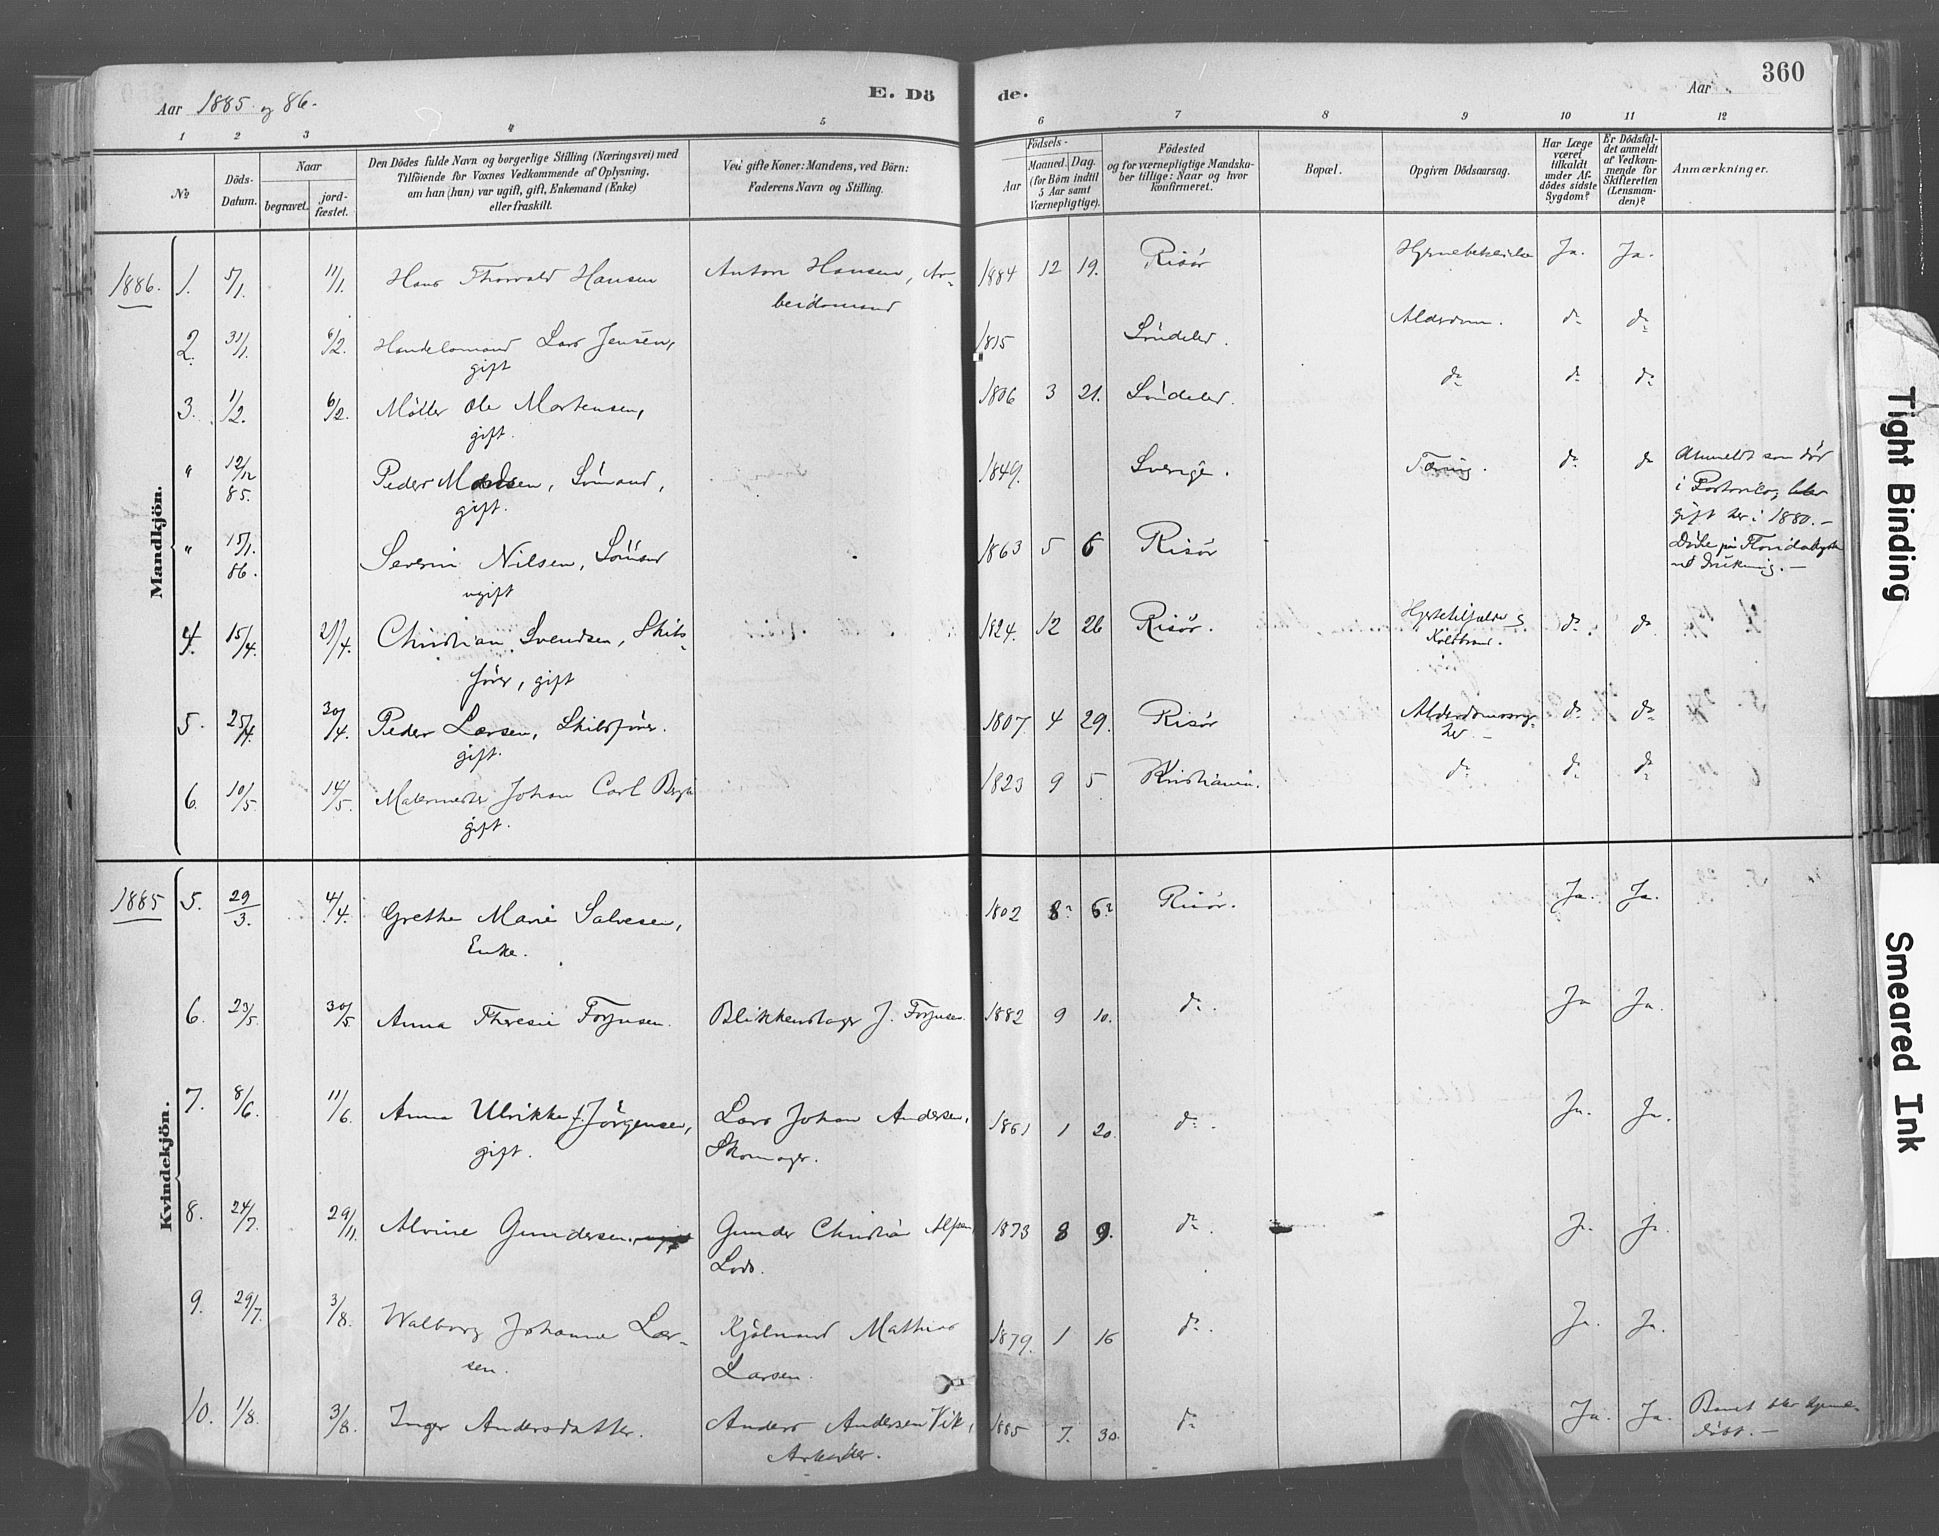 360
Aar 1885 og 86.
E. Dö de.
Aar
1 2 3 4 5 6 7 8 9 10 11 12
No
Döds-Datum.
Naar
begravet.
jordfæstet.
Den Dödes fulde Navn og borgerlige Stilling (Næringsvei) med
Tilföiende for Voxnes Vedkommende af Oplysning,
om han (hun) var ugift, gift, Enkemand (Enke)
eller fraskilt.
Ved gifte Koner: Mandens, ved Börn:
Faderens Navn og Stilling.
Födsels-
Aar
Maaned. Dag.
(for Börn indtil
5 Aar samt
Værnepligtige).
Födested
og for værnepligtige Mandska-
ber tillige: Naar og hvor
konfirmeret.
Bopæl.
Opgiven Dödsaarsag.
Har Læge
været
tilkaldt
under Af-
dödes sidste
Sygdom?
Er Dödsfal-
det anmeldt
af Vedkom-
mende for
Skifteretten
(Lensman-
den)?
Anmærkninger.
Mandkjön.
1886. 1. 5/1. 11/1. Hans Thorvald Hansen Anton Hansen, Ar- 1884 12 19. Risör Ja. Ja.
beidsmand
2. 31/1. 6/2. Handelsmand Lars Jensen, 1815 Söndeled. Alderdom. do do
gift
3. 1/2. 6/2. Möller Ole Mortensen, 1806 3 21. Söndeled. do do do
gift.
" 12/12 85. Peder Madsen, Sömand, 1849. Sverige. Tæring. do do Anmeldt som död
gift. i Portorico, blev
gift her i 1880.-
" 15/1. 86. Severin Nilsen, Sömand 1863 5 6 Risör Döde på Floridakysten
ugift ved Drukning.-
4. 15/4. 21/4. Christian Svendsen, Skibs- 1824. 12 26 Risör. Hjertelidelse og do do
förer, gift Koldbrand.
5. 25/4. 30/4. Peder Larsen, Skibsförer. 1807 4 29. Risör Alderdomssvag- do do
gift. hed.-
6. 10/5. 14/5. Malermester Johan Carl Bergh 1823 9 5 Kristiania. do do do
gift.
Kvindekjön.
1885 5. 29/3. 4/4. Grethe Marie Salvesen, 1802 8? 6? Risör. Ja. Ja.
Enke.
6. 23/5. 30/5 Anna Theresie Forjusen. Blikkenslager J. Forjusen 1882 9 10. do. Ja Ja.
7. 8/6. 11/6. Anna Ulrikke f. Jörgensen, Lars Johan Andersen, 1861 1 20. do. Ja. Ja.
gift. Skomager.
8. 24/7. 29/11. Alvine Gundersen. Gunder Christian 1873 8 9. do. Ja. Ja.
Lods.
9. 29/7. 3/8. Walborg Johanne Lar- Kjölmand Mathias 1879. 1 16 do. Ja. Ja.
sen. Larsen.
10. 1/8. 3/8. Inger Andersdatter. Anders Andersen Vik, 1885 7. 30. do Ja. Ja. Barnet blev hjemme-
Arbeider. döbt.-
Tight Binding
Smeared Ink